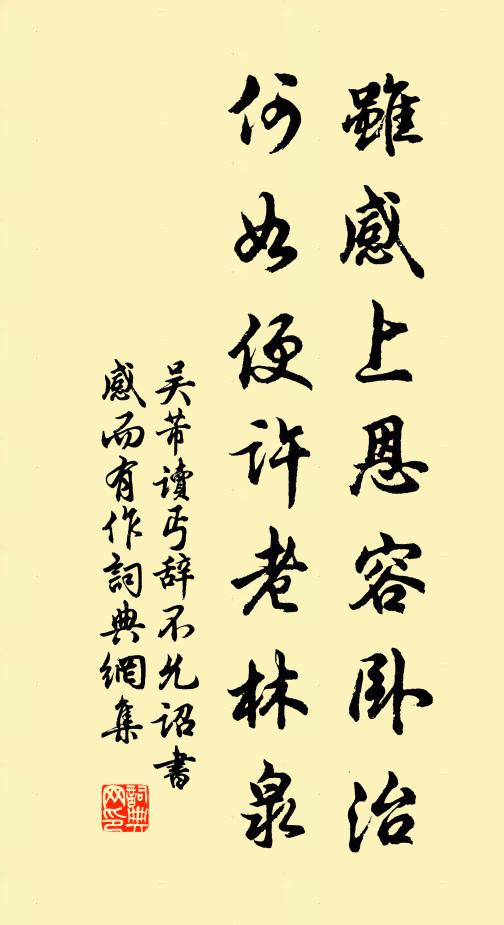 雖感上恩容卧治
何如便許老林泉
吳芾讀丐辞不允詔書
感而有作詞典網集
詞典网印